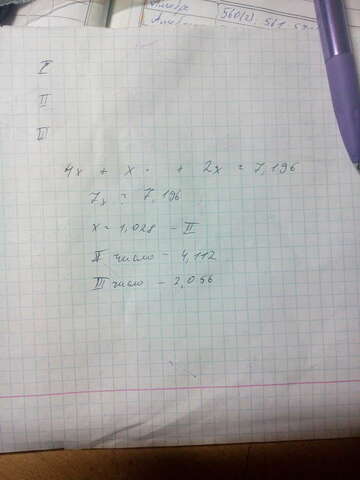 560(2), 561
I
II
III
4x + x + 2x = 7,196
7x = 7,196
x = 1,028 - II
I число - 4,112
III число - 2,056